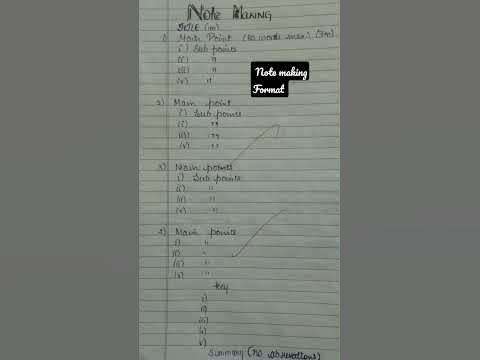 Note Making
TITLE (1m)
1) Main Point (10 words max) (5m)
i) Sub points
ii) "
iii) "
iv) "
Note making
Format
2) Main point
i) Sub points
ii) "
iii) "
iv) "
3) Main points
i) Sub points
ii) "
iii) "
iv) "
Main points
i) "
ii) "
iii) "
iv) "
Key
i)
ii)
iii)
iv)
v)
Summary (no abbreviations)